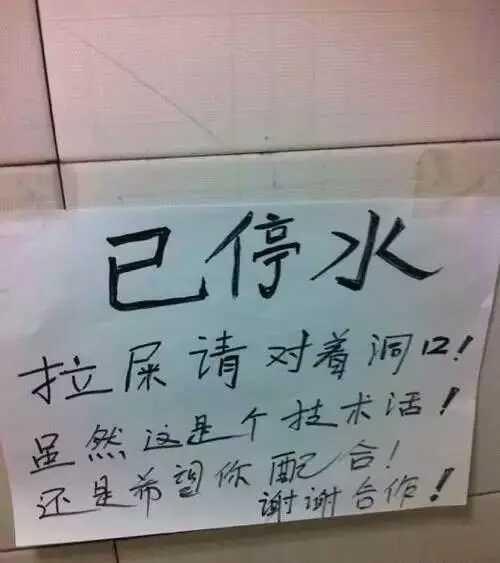 已停水
拉屎请对着洞口!
虽然这是个技术活!
还是希望你配合!
谢谢合作!